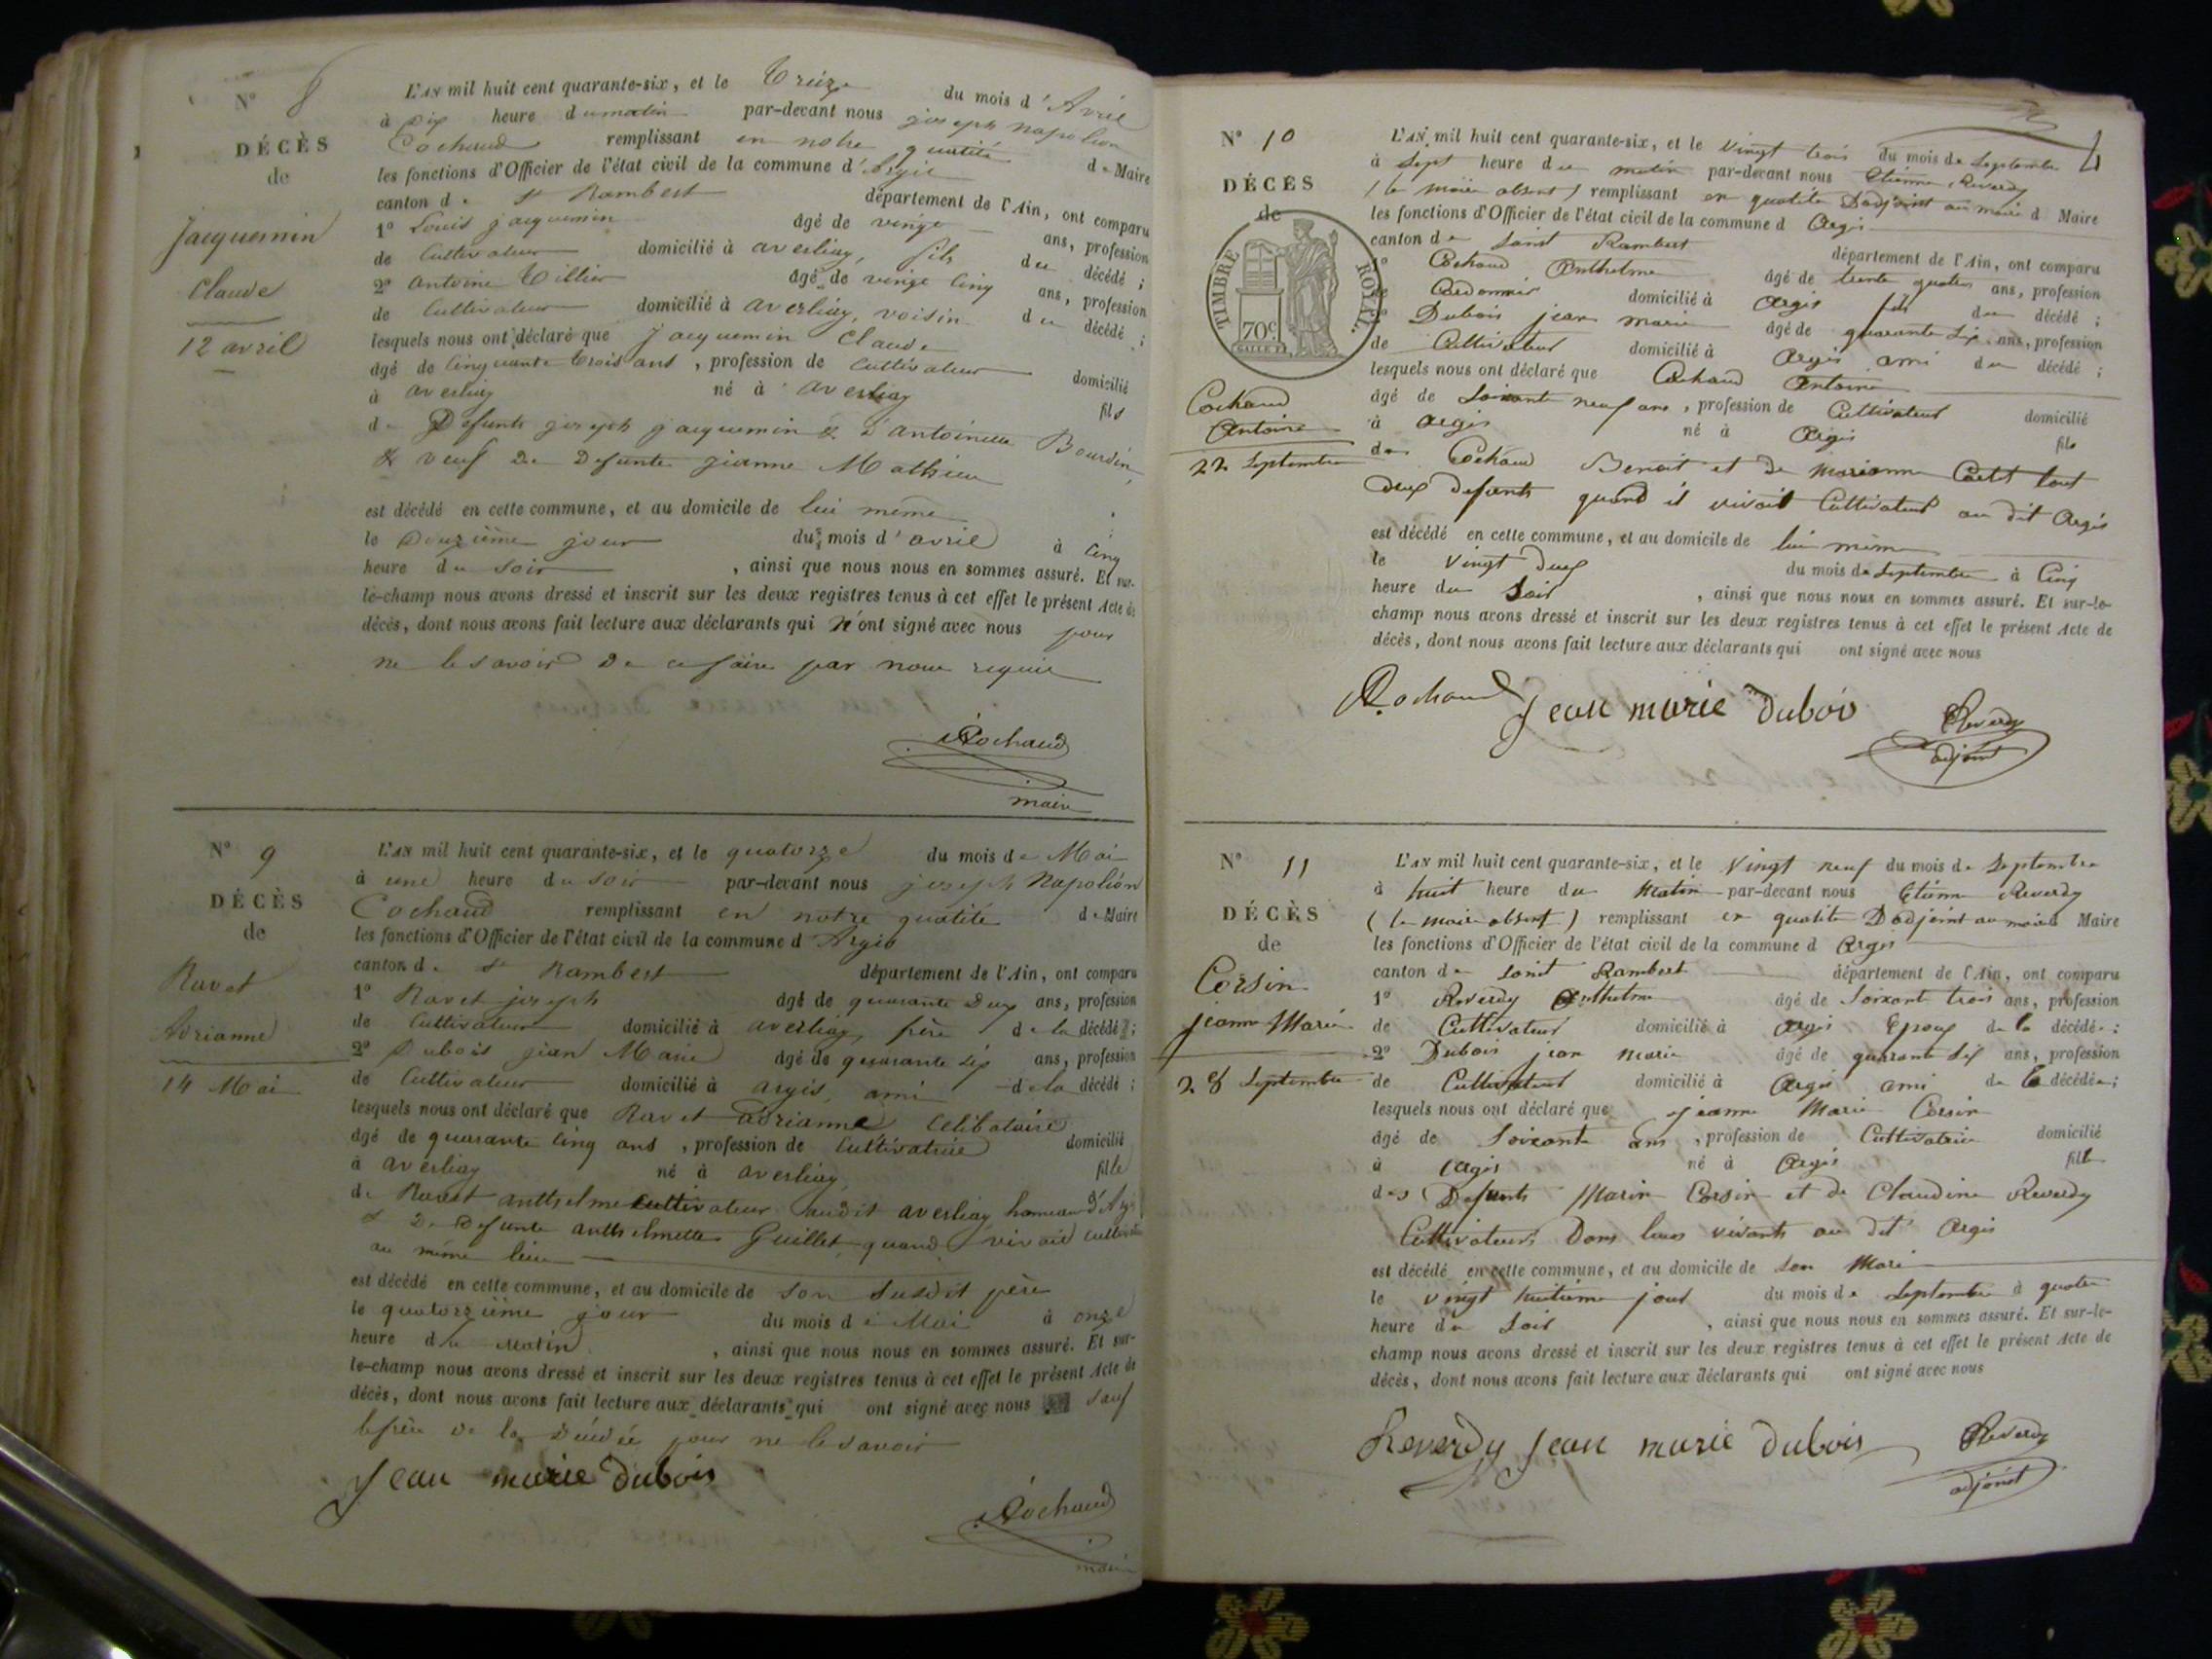 N° 8
DÉCÈS
de
Jacquemin
Claude
12 avril
L'AN mil huit cent quarante-six, et le treize du mois d'Avril
à dix heure du matin par-devant nous joseph napoléon
Cochaud remplissant en notre qualité de Maire
les fonctions d'Officier de l'état civil de la commune d'Argis
canton de St Rambert département de l'Ain, ont comparu
1° Louis jacquemin âgé de vingt ans, profession
de Cultivateur domicilié à averliaz, fils du décédé ;
2° antoine Tillier âgé de vingt cinq ans, profession
de Cultivateur domicilié à averliaz, voisin du décédé ;
lesquels nous ont déclaré que Jacquemin Claude
âgé de Cinquante trois ans, profession de Cultivateur domicilié
à averliaz né à averliaz fils
de Defunts joseph jacquemin & d'antoinette Bourdin,
& veuf De Defunte jeanne Mathieu
est décédé en cette commune, et au domicile de lui même
le Douzième jour du mois d'avril à cinq
heure du soir, ainsi que nous nous en sommes assuré. Et sur-
le-champ nous avons dressé et inscrit sur les deux registres tenus à cet effet le présent Acte de
décès, dont nous avons fait lecture aux déclarants qui n'ont signé avec nous pour
ne le savoir De ce faire par nous requis
Cochaud
maire
N° 9
DÉCÈS
de
Ravet
Adrianne
14 Mai
L'AN mil huit cent quarante-six, et le quatorze du mois de Mai
à une heure du soir par-devant nous joseph Napoléon
Cochaud remplissant en notre qualité de Maire
les fonctions d'Officier de l'état civil de la commune d'Argis
canton de St Rambert département de l'Ain, ont comparu
1° Ravet joseph âgé de quarante Deux ans, profession
de Cultivateur domicilié à averliaz, frère de la décédé ;
2° Dubois jean Marie âgé de quarante six ans, profession
de Cultivateur domicilié à argis, ami de la décédé ;
lesquels nous ont déclaré que Ravet adrianne Célibataire
âgé de quarante cinq ans, profession de Cultivatrice domicilié
à averliaz né à averliaz, fille
de Ravet anthelme cultivateur audit averliaz hameau d'Argis
& De Defunte anthelmette Guillet quand vivait cultivatrice
au même lieu
est décédé en cette commune, et au domicile de son susdit père
le quatorzième jour du mois de Mai à onze
heure du Matin, ainsi que nous nous en sommes assuré. Et sur-
le-champ nous avons dressé et inscrit sur les deux registres tenus à cet effet le présent Acte de
décès, dont nous avons fait lecture aux déclarants qui ont signé avec nous sauf
le frère de la Décédée pour ne le savoir
Jean marie dubois
Cochaud
maire
N° 10
DÉCÈS
de
TIMBRE ROYAL.
70 c.
Cochaud
Antoine
22 Septembre
L'AN mil huit cent quarante-six, et le vingt trois du mois de Septembre
à Sept heure du matin par-devant nous Etienne Reverdy
(le maire absent) remplissant en qualité D'adjoint au maire d Maire
les fonctions d'Officier de l'état civil de la commune d Argis
canton de Saint Rambert département de l'Ain, ont comparu
1° Cochaud Anthelme âgé de trente quatre ans, profession
de Cordonnier domicilié à Argis fils du décédé ;
2° Dubois jean marie âgé de quarante six ans, profession
de Cultivateur domicilié à Argis ami du décédé ;
lesquels nous ont déclaré que Cochaud Antoine
âgé de Soixante neuf ans, profession de Cultivateur domicilié
à Argis né à Argis fils
de Cochaud Benoit et de marianne tout
deux defunts quand il vivait Cultivateur au dit Argis
est décédé en cette commune, et au domicile de lui même
le vingt deux du mois de Septembre à Cinq
heure du Soir, ainsi que nous nous en sommes assuré. Et sur-le-
champ nous avons dressé et inscrit sur les deux registres tenus à cet effet le présent Acte de
décès, dont nous avons fait lecture aux déclarants qui ont signé avec nous
Cochaud Jean marie dubois Reverdy
adjoint
N° 11
DÉCÈS
de
Corsin
jeanne Marie
28 Septembre
L'AN mil huit cent quarante-six, et le Vingt neuf du mois de Septembre
à huit heure du Matin par-devant nous Etienne Reverdy
(le maire absent) remplissant en qualité D'adjoint au maire d Maire
les fonctions d'Officier de l'état civil de la commune d Argis
canton de Saint Rambert département de l'Ain, ont comparu
1° Reverdy Anthelme âgé de Soixante trois ans, profession
de Cultivateur domicilié à Argis Epoux de la décédée ;
2° Dubois jean marie âgé de quarante six ans, profession
de Cultivateur domicilié à Argis ami de la décédée ;
lesquels nous ont déclaré que jeanne Marie Corsin
âgé de Soixante ans, profession de Cultivatrice domicilié
à Argis né à Argis fille
des Defunts Marin Corsin et de Claudine Reverdy
Cultivateurs Dans leurs vivants au dit Argis
est décédé en cette commune, et au domicile de Son Mari
le vingt huitième jour du mois de Septembre à quatre
heure du Soir, ainsi que nous nous en sommes assuré. Et sur-le-
champ nous avons dressé et inscrit sur les deux registres tenus à cet effet le présent Acte de
décès, dont nous avons fait lecture aux déclarants qui ont signé avec nous
Reverdy Jean marie dubois Reverdy
adjoint